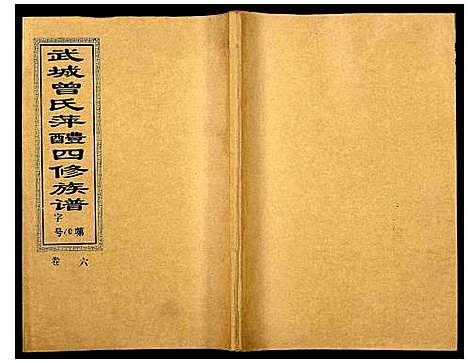 武城曾氏萍醴四修族谱
字第10号
卷六